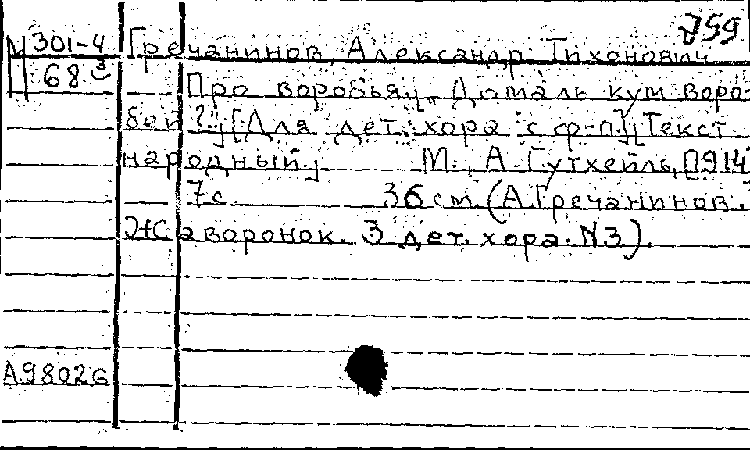 759
М 301-4 Гречанинов, Александр Тихонович
68 3 Про воробья. „Дома ль кум воро-
бей?" [Для дет. хора с ф-п.] [Текст
народный] М., А. Гутхейль, [1914]
7 с. 36 см. (А. Гречанинов.
Жаворонок. 3 дет. хора. №3).
А9802G